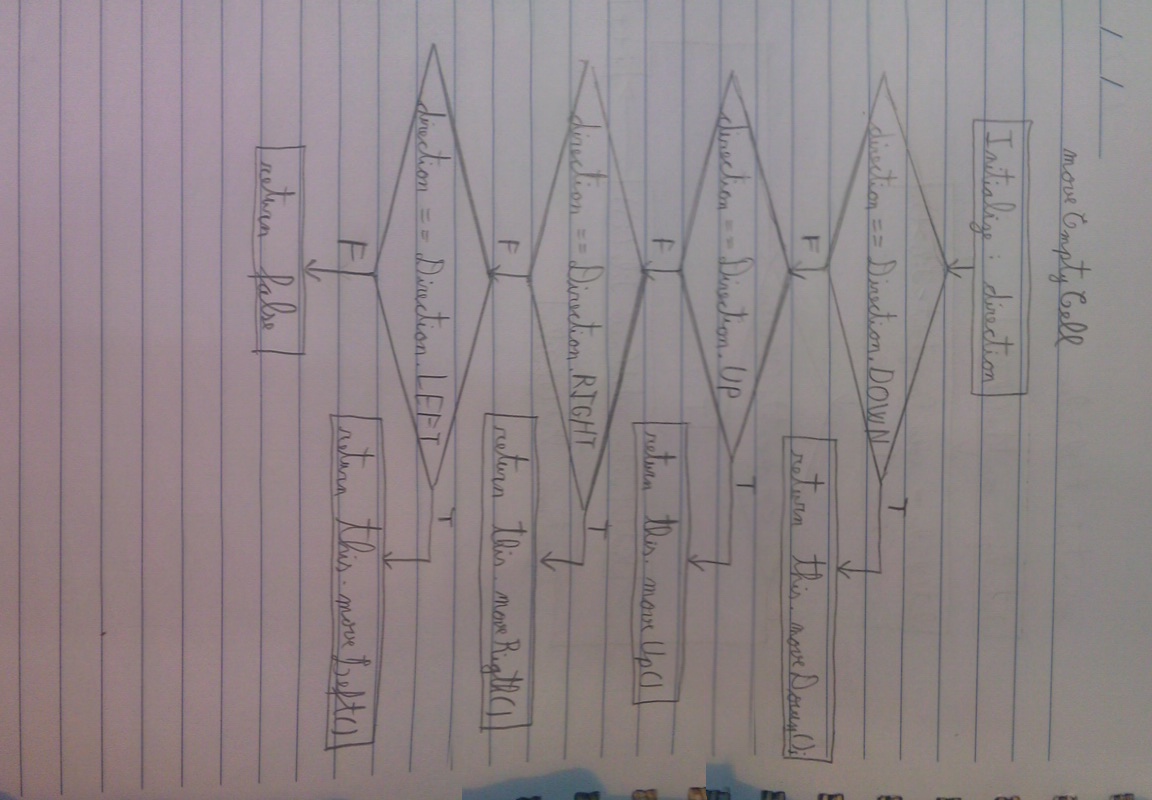 / /
moveEmptyCell
Initialize: direction
direction == Direction.DOWN
T
F
return this.moveDown();
direction == Direction.UP
T
F
return this.moveUp()
direction == Direction.RIGHT
T
F
return this.moveRigth()
direction == Direction.LEFT
T
F
return this.moveLeft()
return false